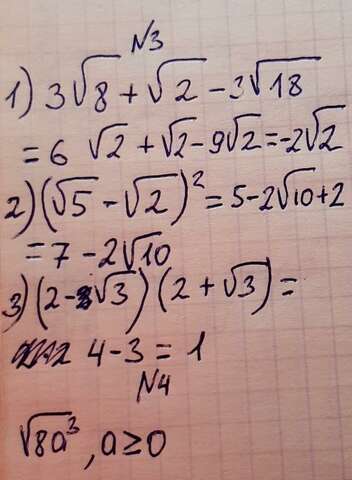 №3
1) 3√8 + √2 - 3√18
= 6 √2 + √2 - 9√2 = -2√2
2) (√5 - √2)² = 5 - 2√10 + 2
= 7 - 2√10
3) (2 - √3) (2 + √3) =
4 - 3 = 1
№4
√8a³, a ≥ 0